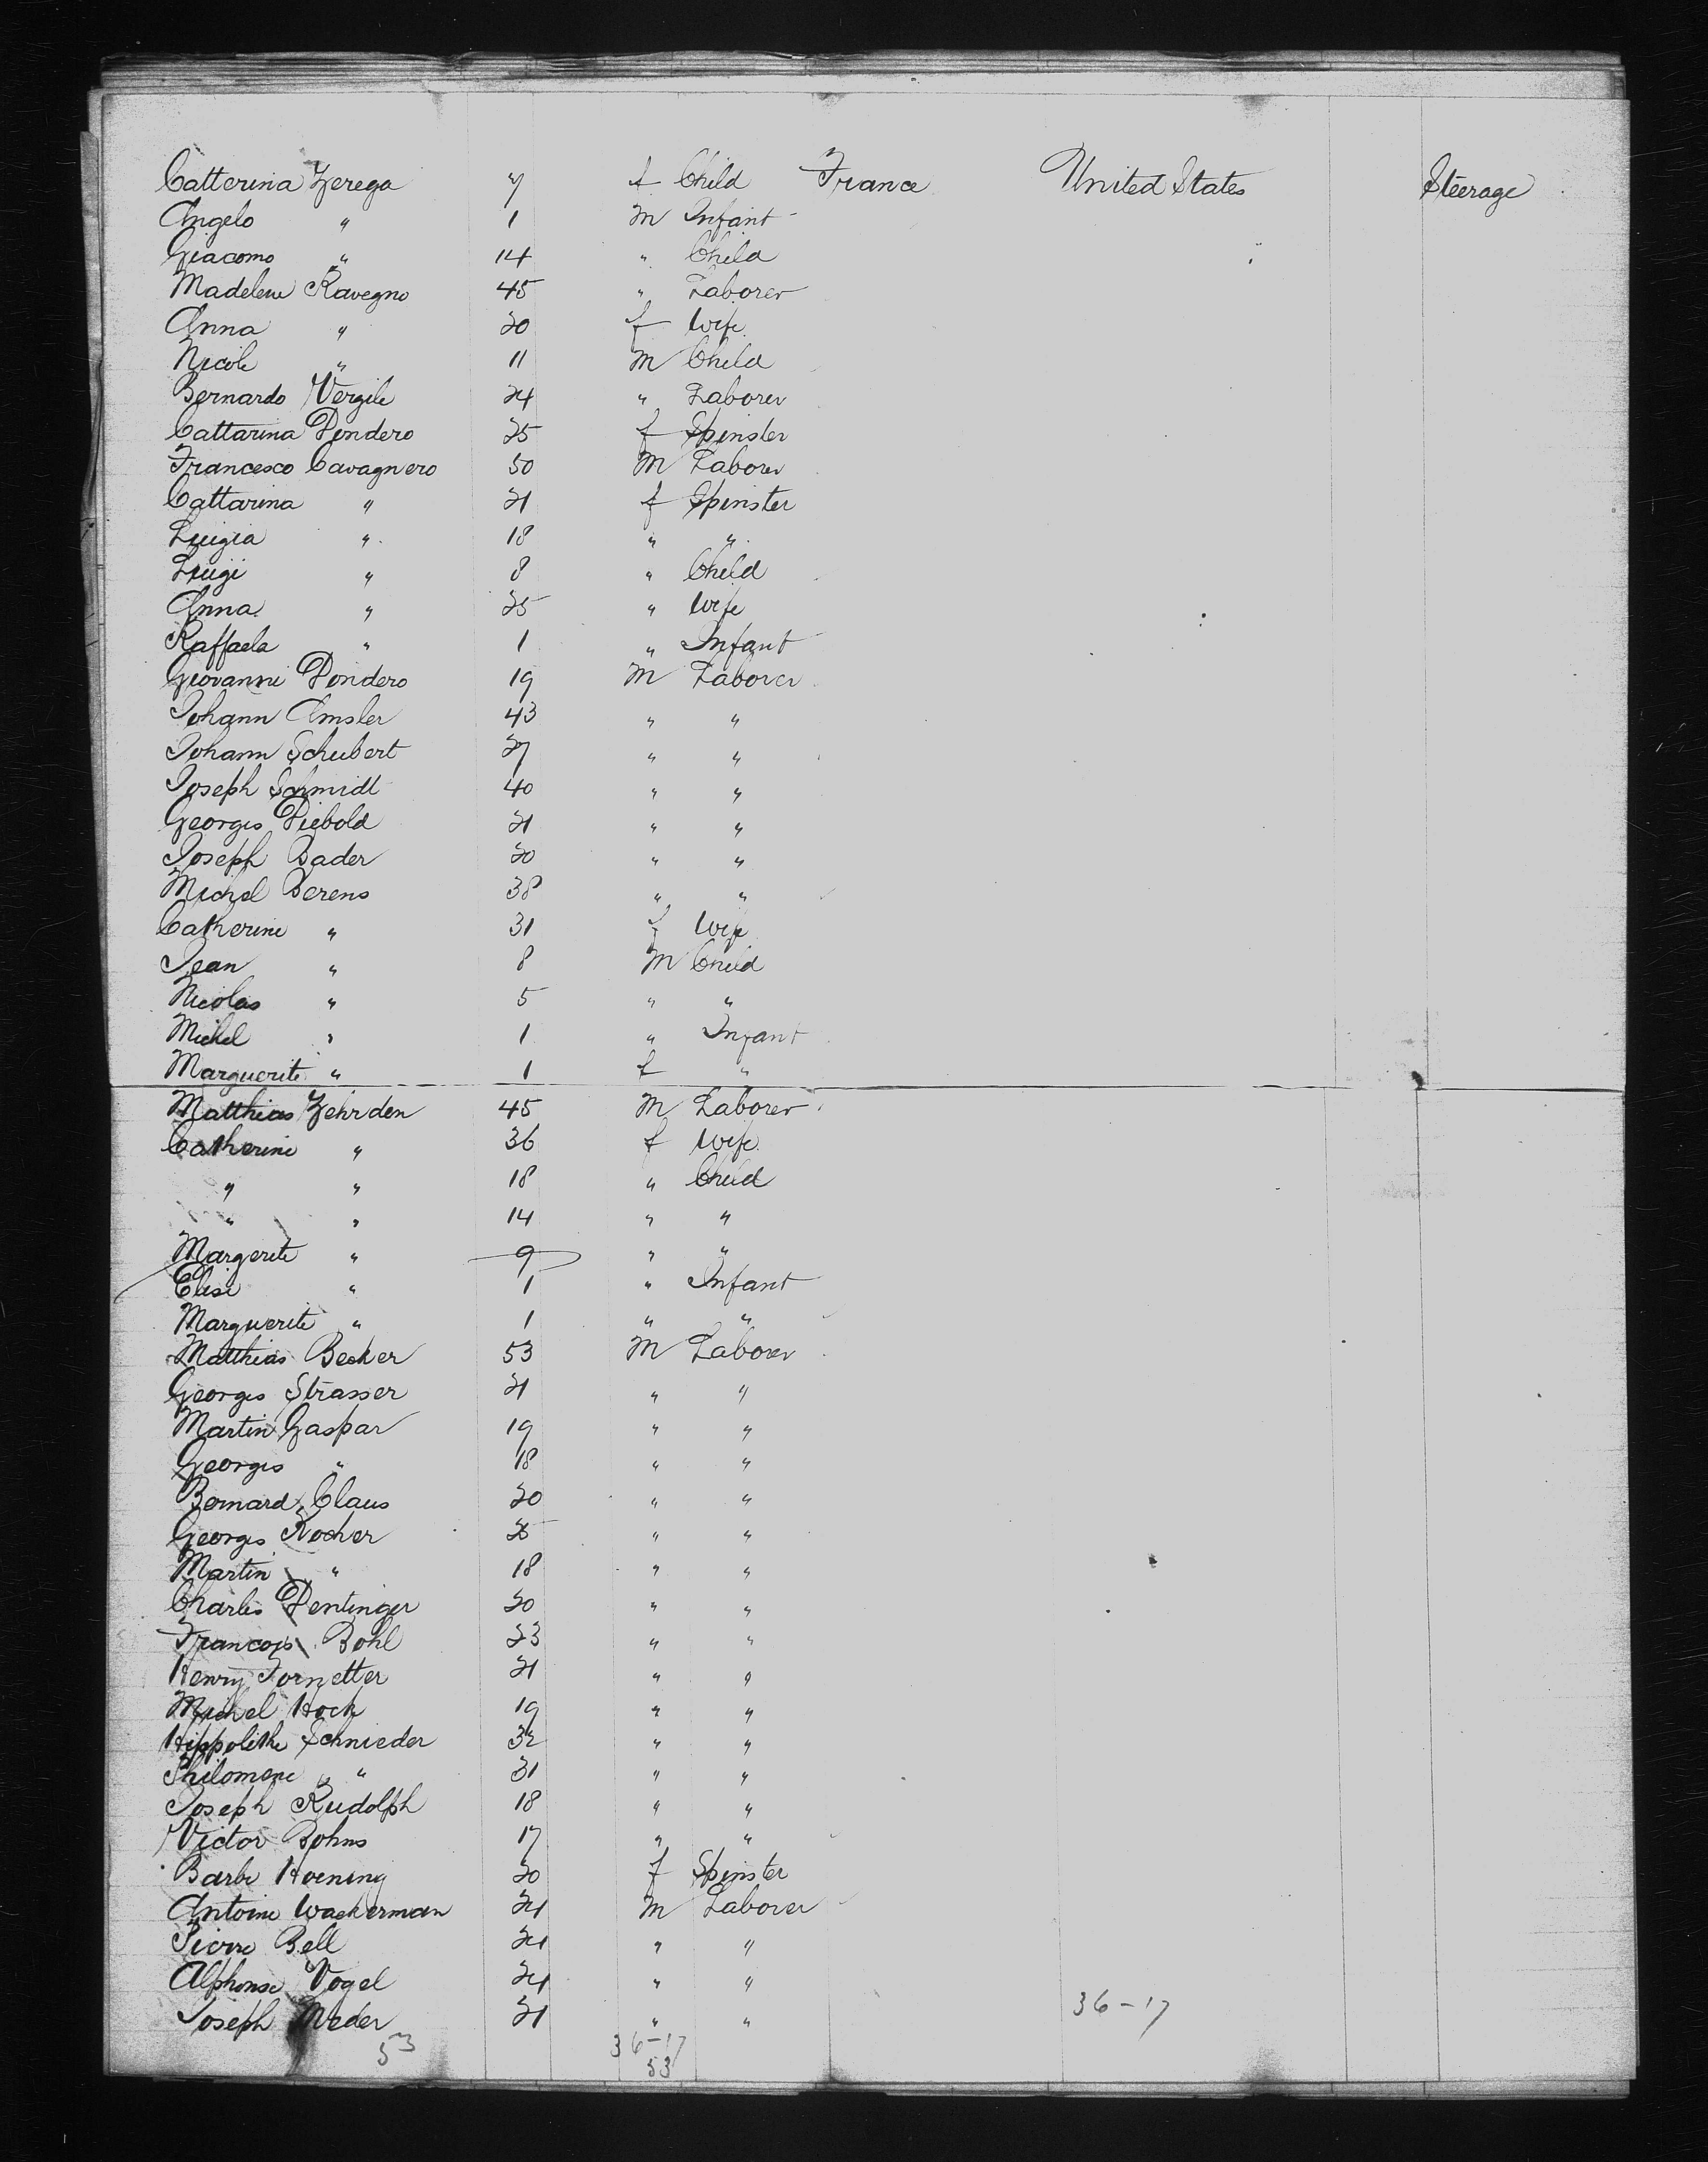 Catterina Zerega 7 f Child France United States Steerage
Angelo " 1 M Infant
Giacomo " 14 " Child
Madelene Ravegno 45 " Laborer
Anna " 30 f Wife
Nicole " 11 M Child
Bernardo Vergile 24 " Laborer
Cattarina Dondero 25 f Spinster
Francesco Cavagnero 50 M Laborer
Cattarina " 21 f Spinster
Luigia " 18 " "
Luigi " 8 " Child
Anna " 25 " Wife
Raffaela " 1 " Infant
Giovanni Dondero 19 M Laborer
Johann Amsler 43 " "
Johann Schubert 27 " "
Joseph Schmidt 40 " "
Georges Diebold 21 " "
Joseph Bader 20 " "
Michel Berens 38 " "
Catherine " 31 f Wife
Jean " 8 M Child
Nicolas " 5 " "
Michel " 1 " Infant
Marguerite " 1 f "
Matthias Zehrden 45 M Laborer
Catherine " 36 f Wife
" " 18 " Child
" " 14 " "
Margerite " 9 " "
Elise " 1 " Infant
Marguerite " 1 " "
Matthias Becker 53 M Laborer
Georges Strasser 21 " "
Martin Gaspar 19 " "
Georges " 18 " "
Bernard Claus 20 " "
Georges Rocher " "
Martin " 18 " "
Charles Dentinger 20 " "
Francois Bohl 23 " "
Henry Fornetter 21 " "
Michel Hock 19 " "
Hippolithe Schnieder 32 " "
Philomene " 31 " "
Joseph Rudolph 18 " "
Victor Bohns 17 " "
Barbe Hoening 20 f Spinster
Antoine Wackerman 24 M Laborer
Pierre Bell 24 " "
Alphonse Vogel 24 " "
Joseph Meder 21 " "
36-17
53 36-17
53